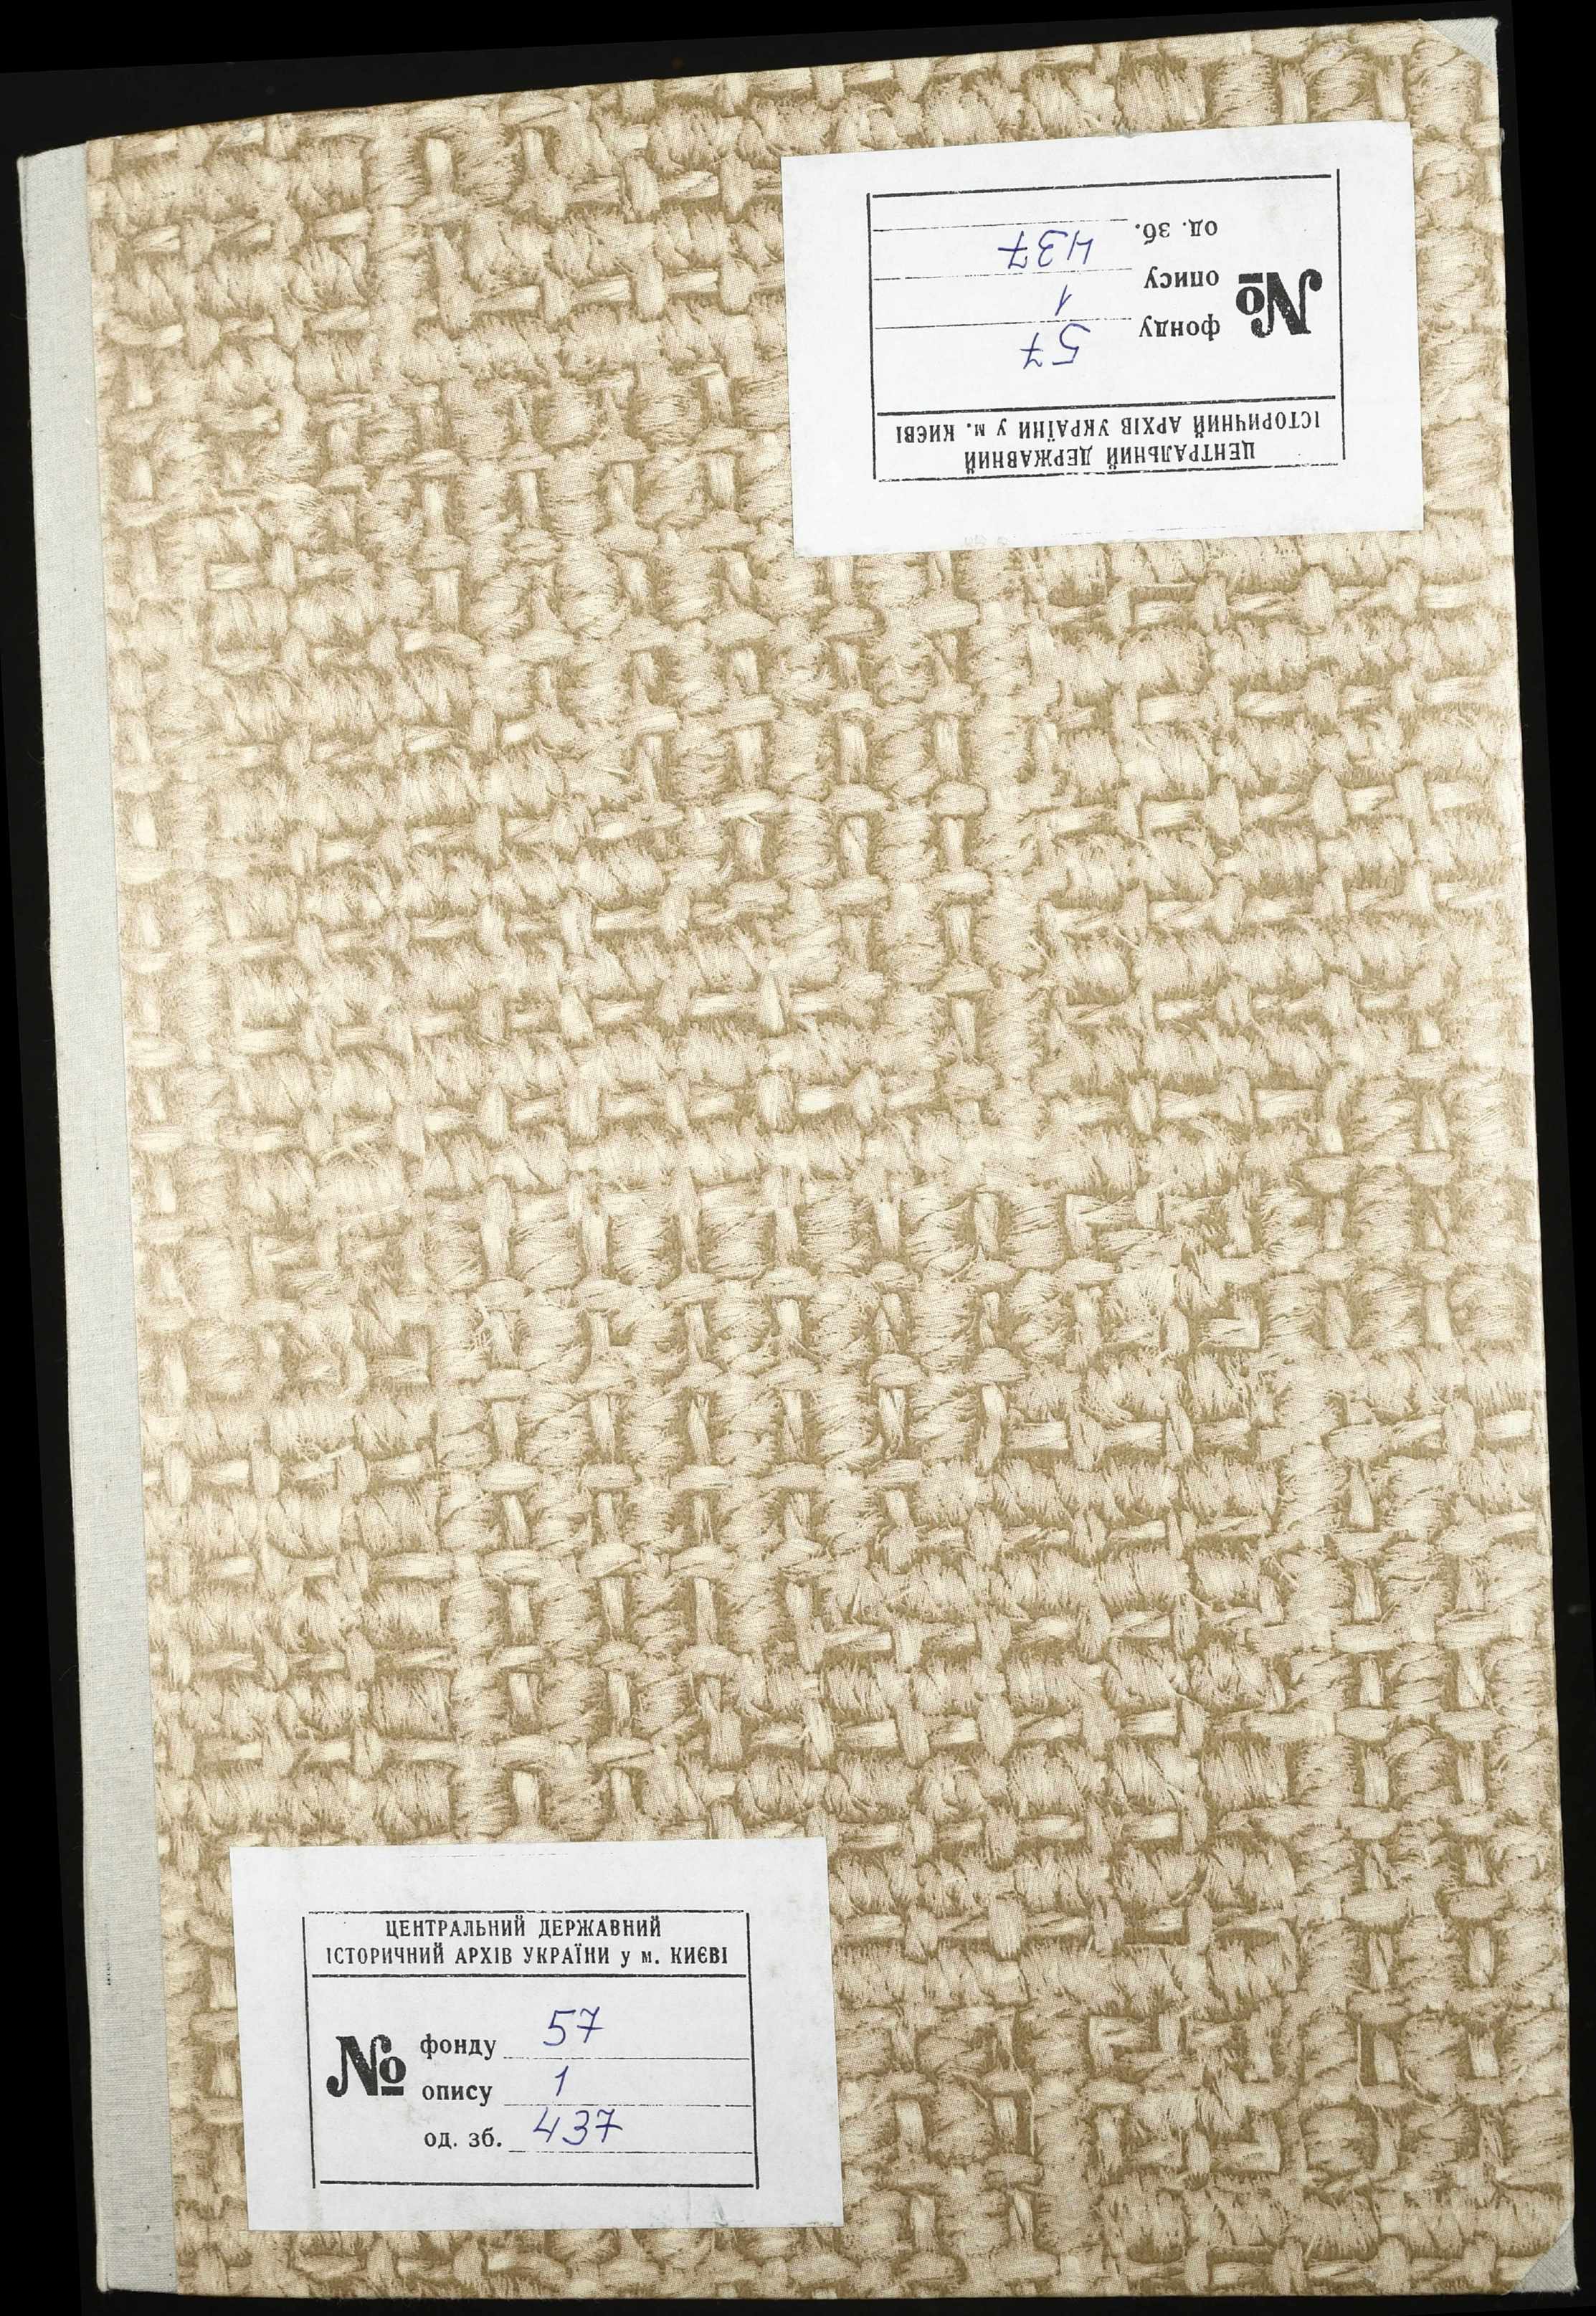 ЦЕНТРАЛЬНИЙ ДЕРЖАВНИЙ
ІСТОРИЧНИЙ АРХІВ УКРАЇНИ у м. КИЄВІ
№
фонду 57
опису 1
од. зб. 437
ЦЕНТРАЛЬНИЙ ДЕРЖАВНИЙ
ІСТОРИЧНИЙ АРХІВ УКРАЇНИ у м. КИЄВІ
№
фонду 57
опису 1
од. зб. 437